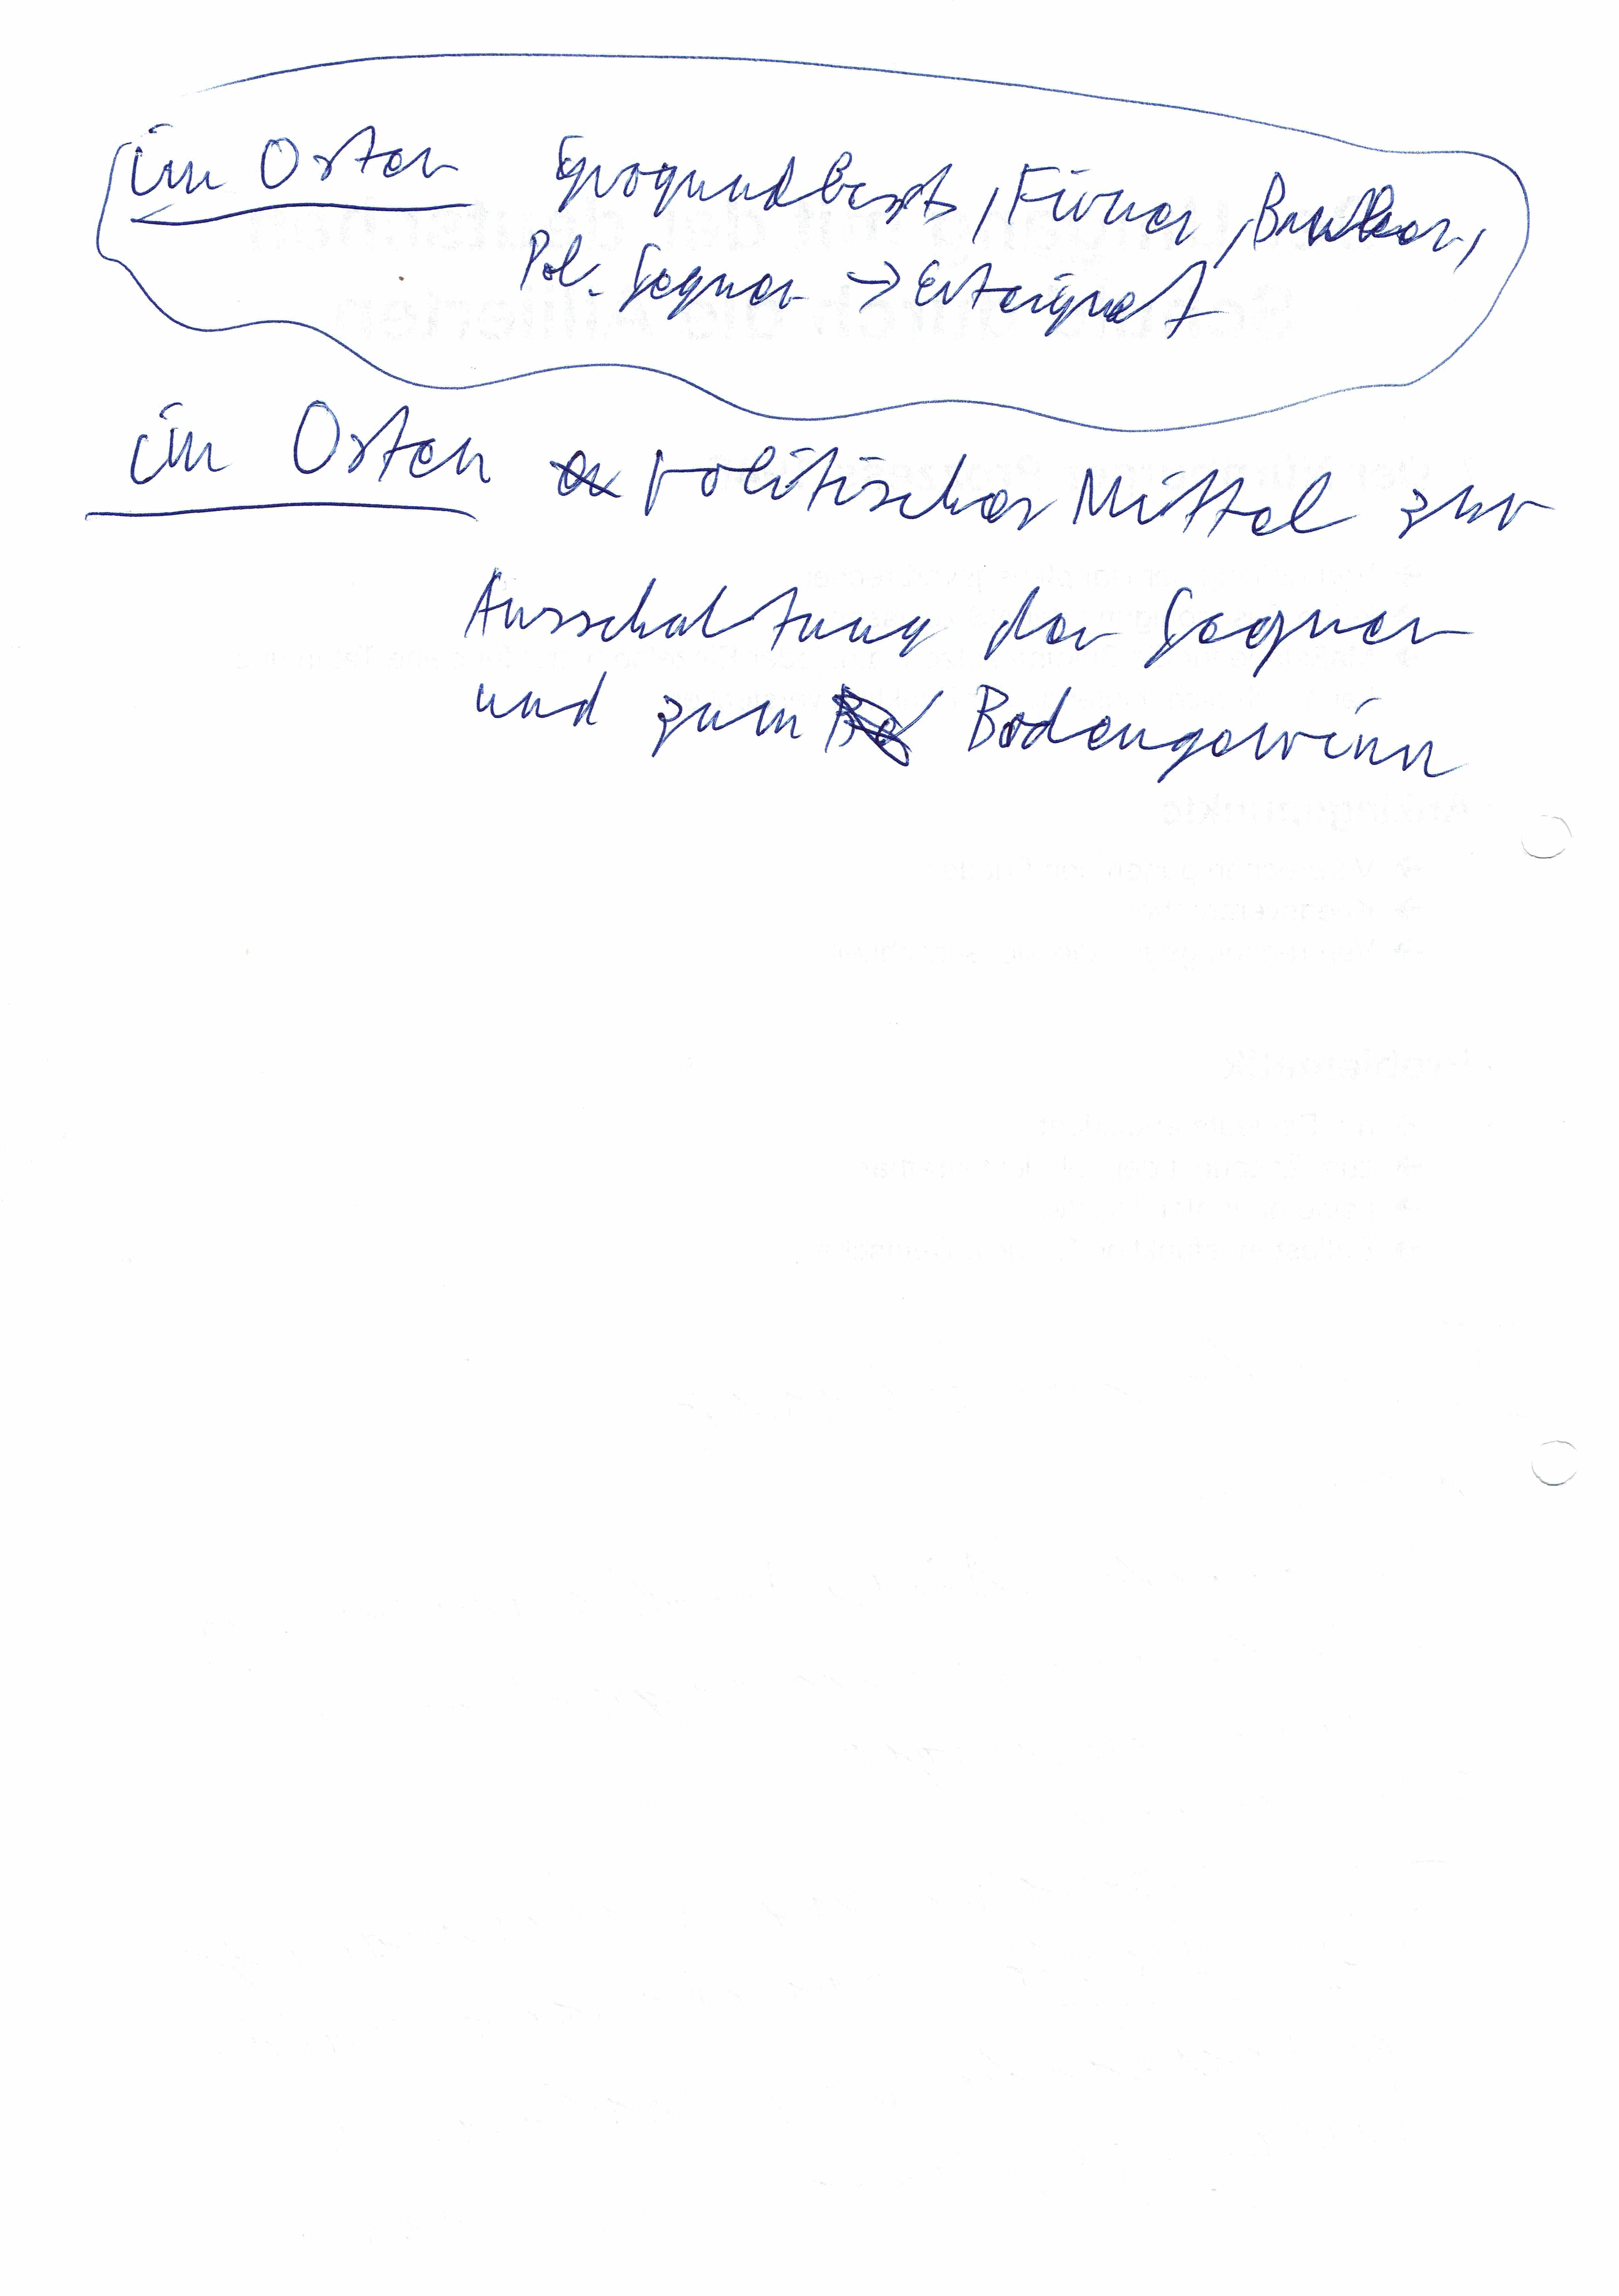 im Osten Großgrundbesitz, Firmen, Banken,
Pol. Gegner → Enteignet
im Osten politisches Mittel zur
Ausschaltung der Gegner
und zum Bodengewinn